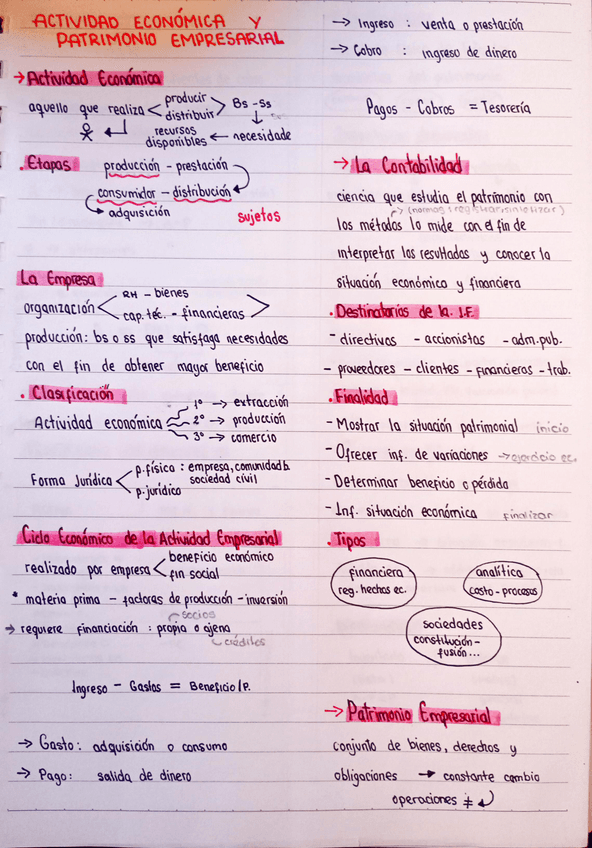 ACTIVIDAD ECONÓMICA Y
PATRIMONIO EMPRESARIAL
→ Actividad Económica
aquello que realiza < producir distribuir > Bs - Ss
recursos disponibles ← necesidade
. Etapas producción - prestación
consumidor - distribución
adquisición sujetos
La Empresa
organización < RH - bienes
cap. téc. - financieras >
producción: bs o ss que satisfaga necesidades
con el fin de obtener mayor beneficio
. Clasificación
Actividad económica
1º → extracción
2º → producción
3º → comercio
Forma Jurídica < p.física : empresa, comunidad b.
sociedad civil
p.jurídico
Ciclo Económico de la Actividad Empresarial
realizado por empresa < beneficio económico
fin social
* materia prima - factoras de producción - inversión
socios
→ requiere financiación : propia o ajena
créditos
Ingreso - Gastos = Beneficio/P.
→ Gasto: adquisición o consumo
→ Pago: salida de dinero
→ Ingreso : venta o prestación
→ Cobro : ingreso de dinero
Pagos - Cobros = Tesorería
→ La Contabilidad
ciencia que estudia el patrimonio con
los métodos lo mide con el fin de
interpretar los resultados y conocer la
situación económico y financiera
. Destinatarios de la I.F.
- directivos - accionistas - adm.pub.
- proveedores - clientes - financieras - trab.
. Finalidad
- Mostrar la situación patrimonial inicio
- Ofrecer inf. de variaciones → ejercicio ec.
- Determinar beneficio o pérdida
- Inf. situación económica finalizar
. Tipos
financiera
reg. hechos ec.
analítica
costo - procesos
sociedades
constitución -
fusión...
→ Patrimonio Empresarial
conjunto de bienes, derechos y
obligaciones → constante cambio
operaciones ≠